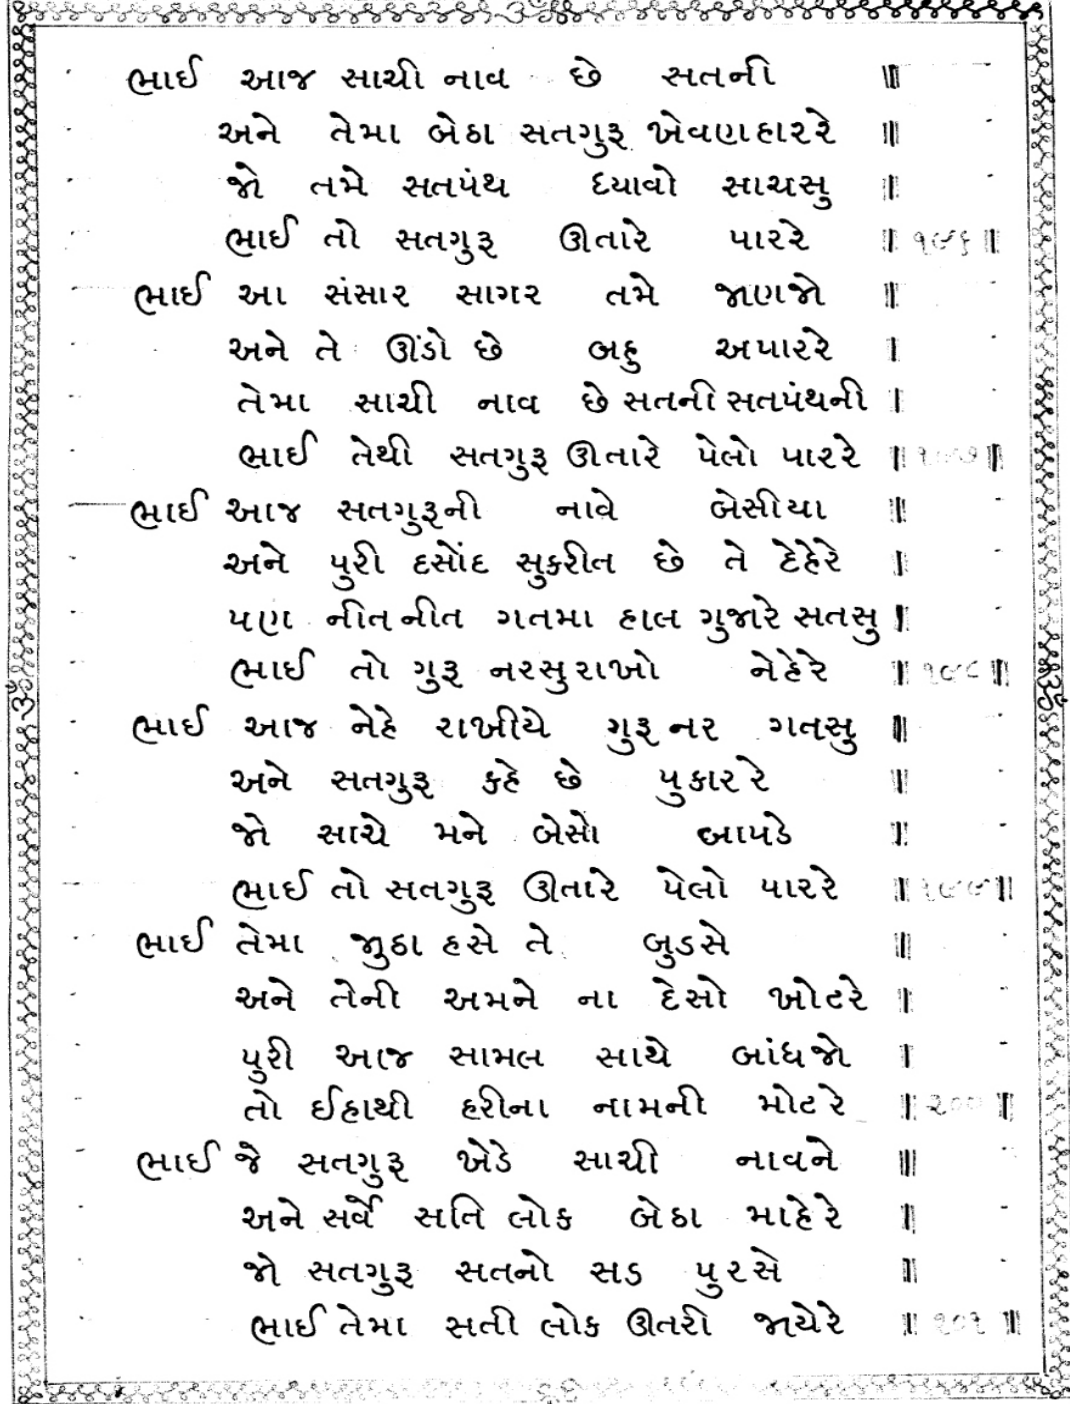 ભાઈ આજ સાચી નાવ છે સતની ॥
અને તેમા બેઠા સતગુરૂ ખેવણહારરે ॥
જો તમે સતપંથ ધ્યાવો સાચસુ ॥
ભાઈ તો સતગુરૂ ઊતારે પારરે ॥ ૧૯૬ ॥
ભાઈ આ સંસાર સાગર તમે જાણજો ॥
અને તે ઊંડો છે બહુ અપારરે ।
તેમા સાચી નાવ છે સતની સતપંથની ।
ભાઈ તેથી સતગુરૂ ઊતારે પેલો પારરે ॥ ૧૯૭ ॥
ભાઈ આજ સતગુરૂની નાવે બેસીયા ॥
અને પુરી દસોંદ સુકરીત છે તે દેહેરે ।
પણ નીતનીત ગતમા હાલ ગુજારે સતસુ ।
ભાઈ તો ગુરૂ નરસુરાખો નેહેરે ॥ ૧૯૮ ॥
ભાઈ આજ નેહે રાખીયે ગુરૂ નર ગતસુ ॥
અને સતગુરૂ કહે છે પુકારરે ॥
જો સાચે મને બેસો બાપડે ॥
ભાઈ તો સતગુરૂ ઊતારે પેલો પારરે ॥ ૧૯૯ ॥
ભાઈ તેમા જુઠા હસે તે બુડસે ॥
અને તેની અમને ના દેસો ખોટરે ॥
પુરી આજ સામલ સાથે બાંધજો ।
તો ઈહાથી હરીના નામની મોટરે ॥ ૨૦૦ ॥
ભાઈ જે સતગુરૂ ખેડે સાચી નાવને ॥
અને સર્વે સતિ લોક બેઠા માહેરે ॥
જો સતગુરૂ સતનો સડ પુરસે ॥
ભાઈ તેમા સતી લોક ઊતરી જાયેરે ॥ ૨૦૧ ॥